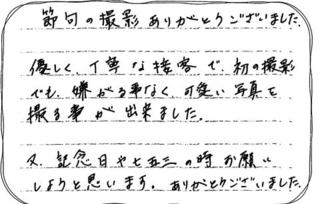 節句の撮影ありがとうございました。
優しく丁寧な接客で、初の撮影
でも、嫌がる事なく可愛い写真を
撮る事が出来ました。
又、記念日や七五三の時お願い
しようと思います。ありがとうございました。